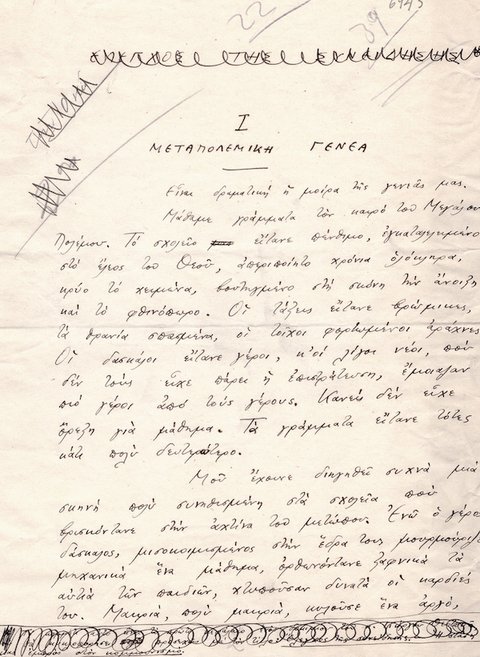 22
39
6945
I
ΜΕΤΑΠΟΛΕΜΙΚΗ ΓΕΝΕΑ
Εἶναι δραματική ἡ μοίρα τῆς γενιᾶς μας.
Μάθαμε γράμματα τόν καιρό τοῦ Μεγάλου
Πολέμου. Τό σχολεῖο εἴτανε πένθιμο, ἐγκαταλειμμένο
στό ἔλεος τοῦ Θεοῦ, ἀπεριποίητο χρόνια ὁλόκληρα,
κρύο τό χειμώνα, βουτηγμένο στή σκόνη τήν ἄνοιξη
καί τό φθινόπωρο. Οἱ τάξεις εἴτανε βρώμικες,
τά θρανία σπασμένα, οἱ τοῖχοι φορτωμένοι ἀράχνες
Οἱ δασκάλοι εἴτανε γέροι, κ' οἱ λίγοι νέοι, πού
δέν τούς εἶχε πάρει ἡ ἐπιστράτευση, ἔμοιαζαν
πιό γέροι ἀπό τούς γέρους. Κανείς δέν εἶχε
ὄρεξη γιά μάθημα. Τά γράμματα εἴτανε τότες
κάτι πολύ δευτερώτερο.
Μοῦ ἔχουνε διηγηθεῖ συχνά μιά
σκηνή πολύ συνηθισμένη στά σχολεῖα πού
βρισκόντανε στήν ἀχτίνα τοῦ μετώπου. Ἐνῶ ὁ γέρο
δάσκαλος, μισοκοιμισμένος στήν ἕδρα του, μουρμούριζε
μηχανικά ἕνα μάθημα, ὀρθωνόντανε ξαφνικά τά
αὐτιά τῶν παιδιῶν, χτυποῦσαν δυνατά οἱ καρδιές
του. Μακριά, πολύ μακριά, κυλοῦσε ἕνα ἀργό,